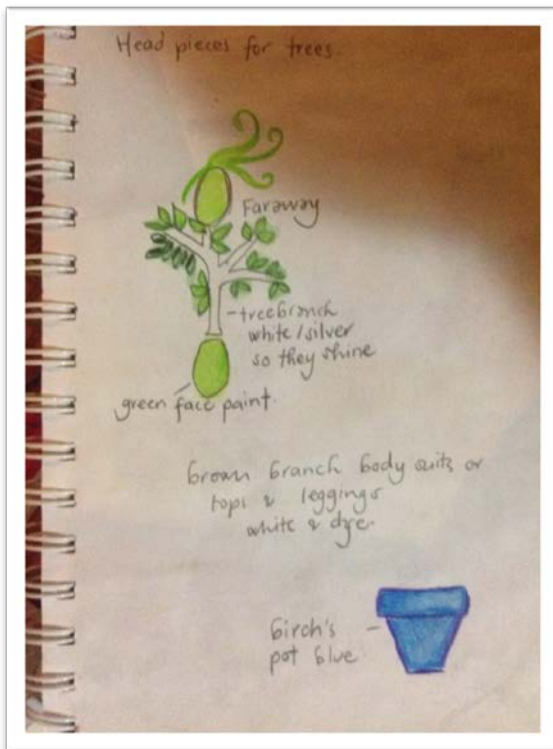 Head pieces for trees.
Faraway
treebranch
white/silver
so they shine
green face paint.
brown branch body suits or
tops & leggings
white & dye.
birch's
pot blue